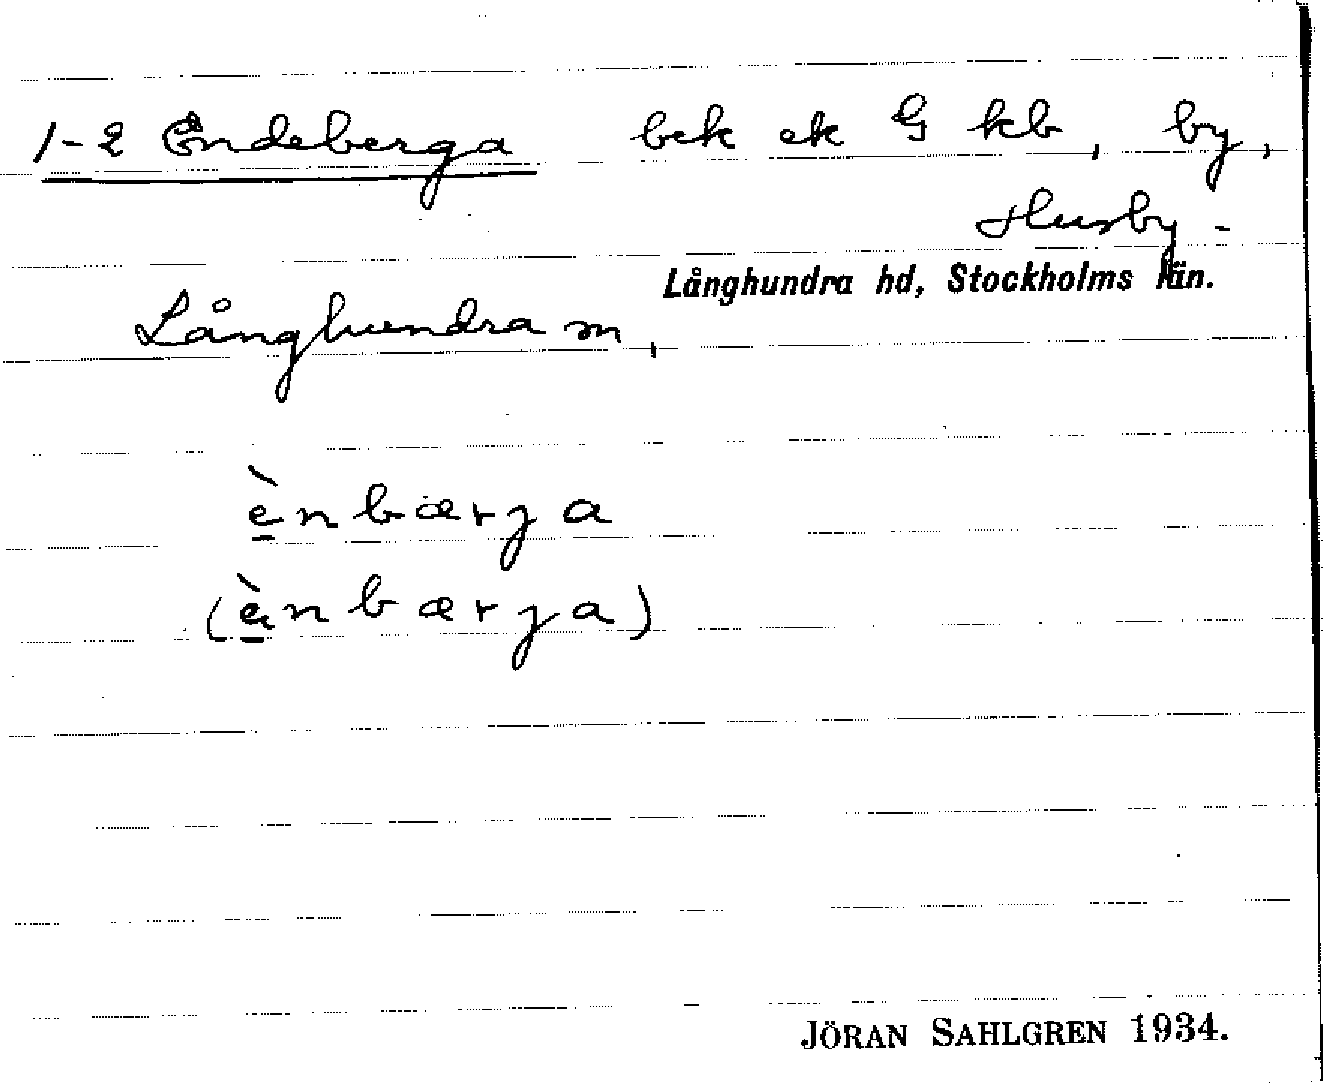 1-2 Endeberga bek ek G kb, by,
Husby-
Långhundra hd, Stockholms län.
Långhundra sn,
ènbærja
(ènbærja)
JÖRAN SAHLGREN 1934.